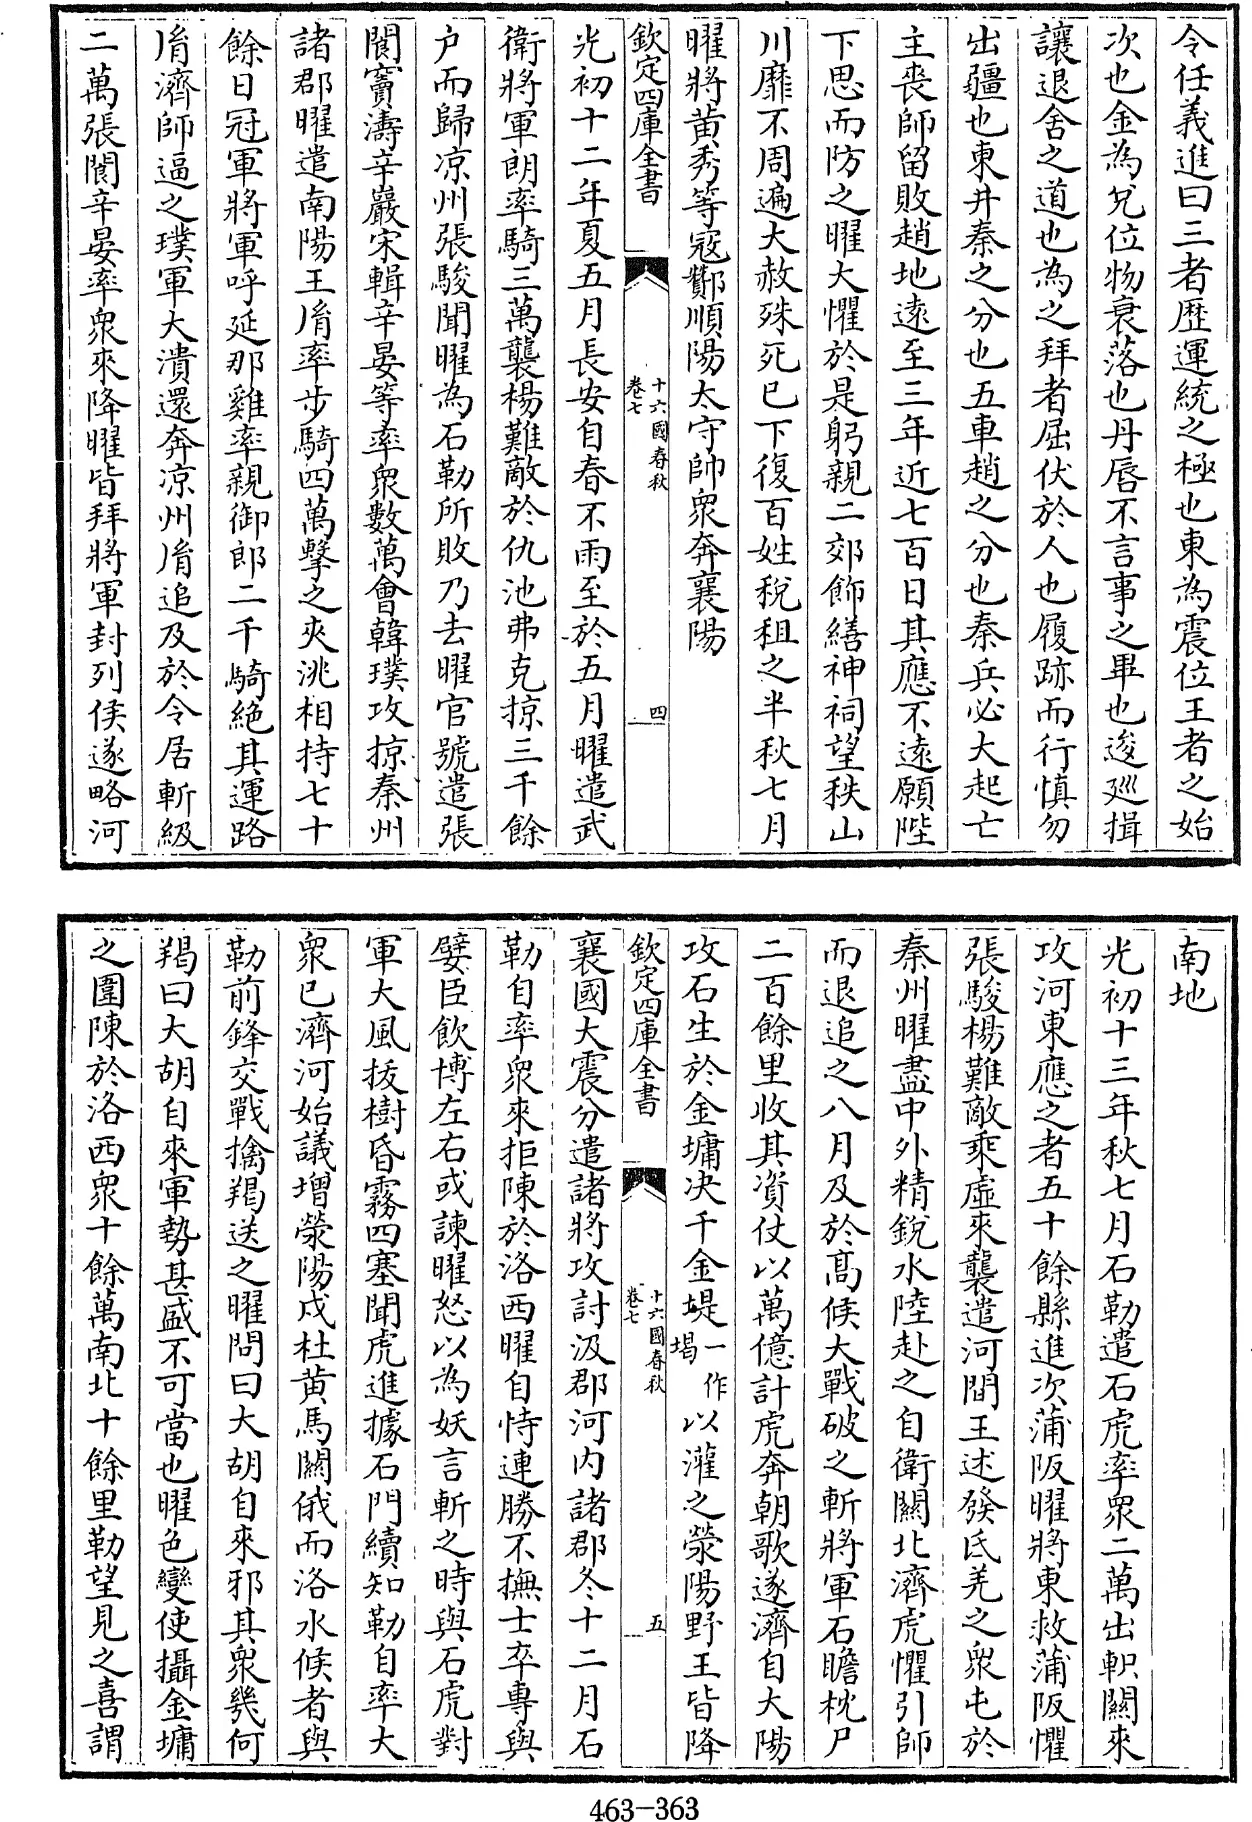 令任義進曰三者歴運統之極也東為震位王者之始
次也金為兌位物衰落也丹唇不言事之畢也逡廵揖
讓退舍之道也為之拜者屈伏於人也履跡而行慎勿
出疆也東井秦之分也五車趙之分也秦兵必大起亡
主喪師留敗趙地遠至三年近七百日其應不遠願陛
下思而防之曜大懼於是躬親二郊飾繕神祠望秩山
川靡不周遍大赦殊死已下復百姓稅租之半秋七月
曜將黄秀等寇酇順陽太守帥衆奔襄陽
欽定四庫全書
十六國春秋
卷七
四
光初十二年夏五月長安自春不雨至於五月曜遣武
衛將軍朗率騎三萬襲楊難敵於仇池弗克掠三千餘
户而歸凉州張駿聞曜為石勒所敗乃去曜官號遣張
閬竇濤辛巖宋輯辛晏等率衆數萬會韓璞攻掠秦州
諸郡曜遣南陽王胤率步騎四萬擊之夾洮相持七十
餘日冠軍將軍呼延那雞率親御郎二千騎絶其運路
胤濟師逼之璞軍大潰還奔凉州胤追及於令居斬級
二萬張閬辛晏率衆來降曜皆拜將軍封列侯遂略河
南地
光初十三年秋七月石勒遣石虎率衆二萬出軹關來
攻河東應之者五十餘縣進次蒲阪曜將東救蒲阪懼
張駿楊難敵乘虛來襲遣河間王述發氐羌之衆屯於
秦州曜盡中外精銳水陸赴之自衛關北濟虎懼引師
而退追之八月及於高候大戰破之斬將軍石瞻枕尸
二百餘里收其資仗以萬億計虎奔朝歌遂濟自大陽
攻石生於金墉决千金堤一作堨以灌之滎陽野王皆降
欽定四庫全書
十六國春秋
卷七
五
襄國大震分遣諸將攻討汲郡河内諸郡冬十二月石
勒自率衆來拒陳於洛西曜自恃連勝不撫士卒專與
嬖臣飲博左右或諫曜怒以為妖言斬之時與石虎對
軍大風拔樹昏霧四塞聞虎進據石門續知勒自率大
衆已濟河始議增滎陽戍杜黄馬關俄而洛水候者與
勒前鋒交戰擒羯送之曜問曰大胡自來邪其衆幾何
羯曰大胡自來軍勢甚盛不可當也曜色變使攝金墉
之圍陳於洛西衆十餘萬南北十餘里勒望見之喜謂
463-363